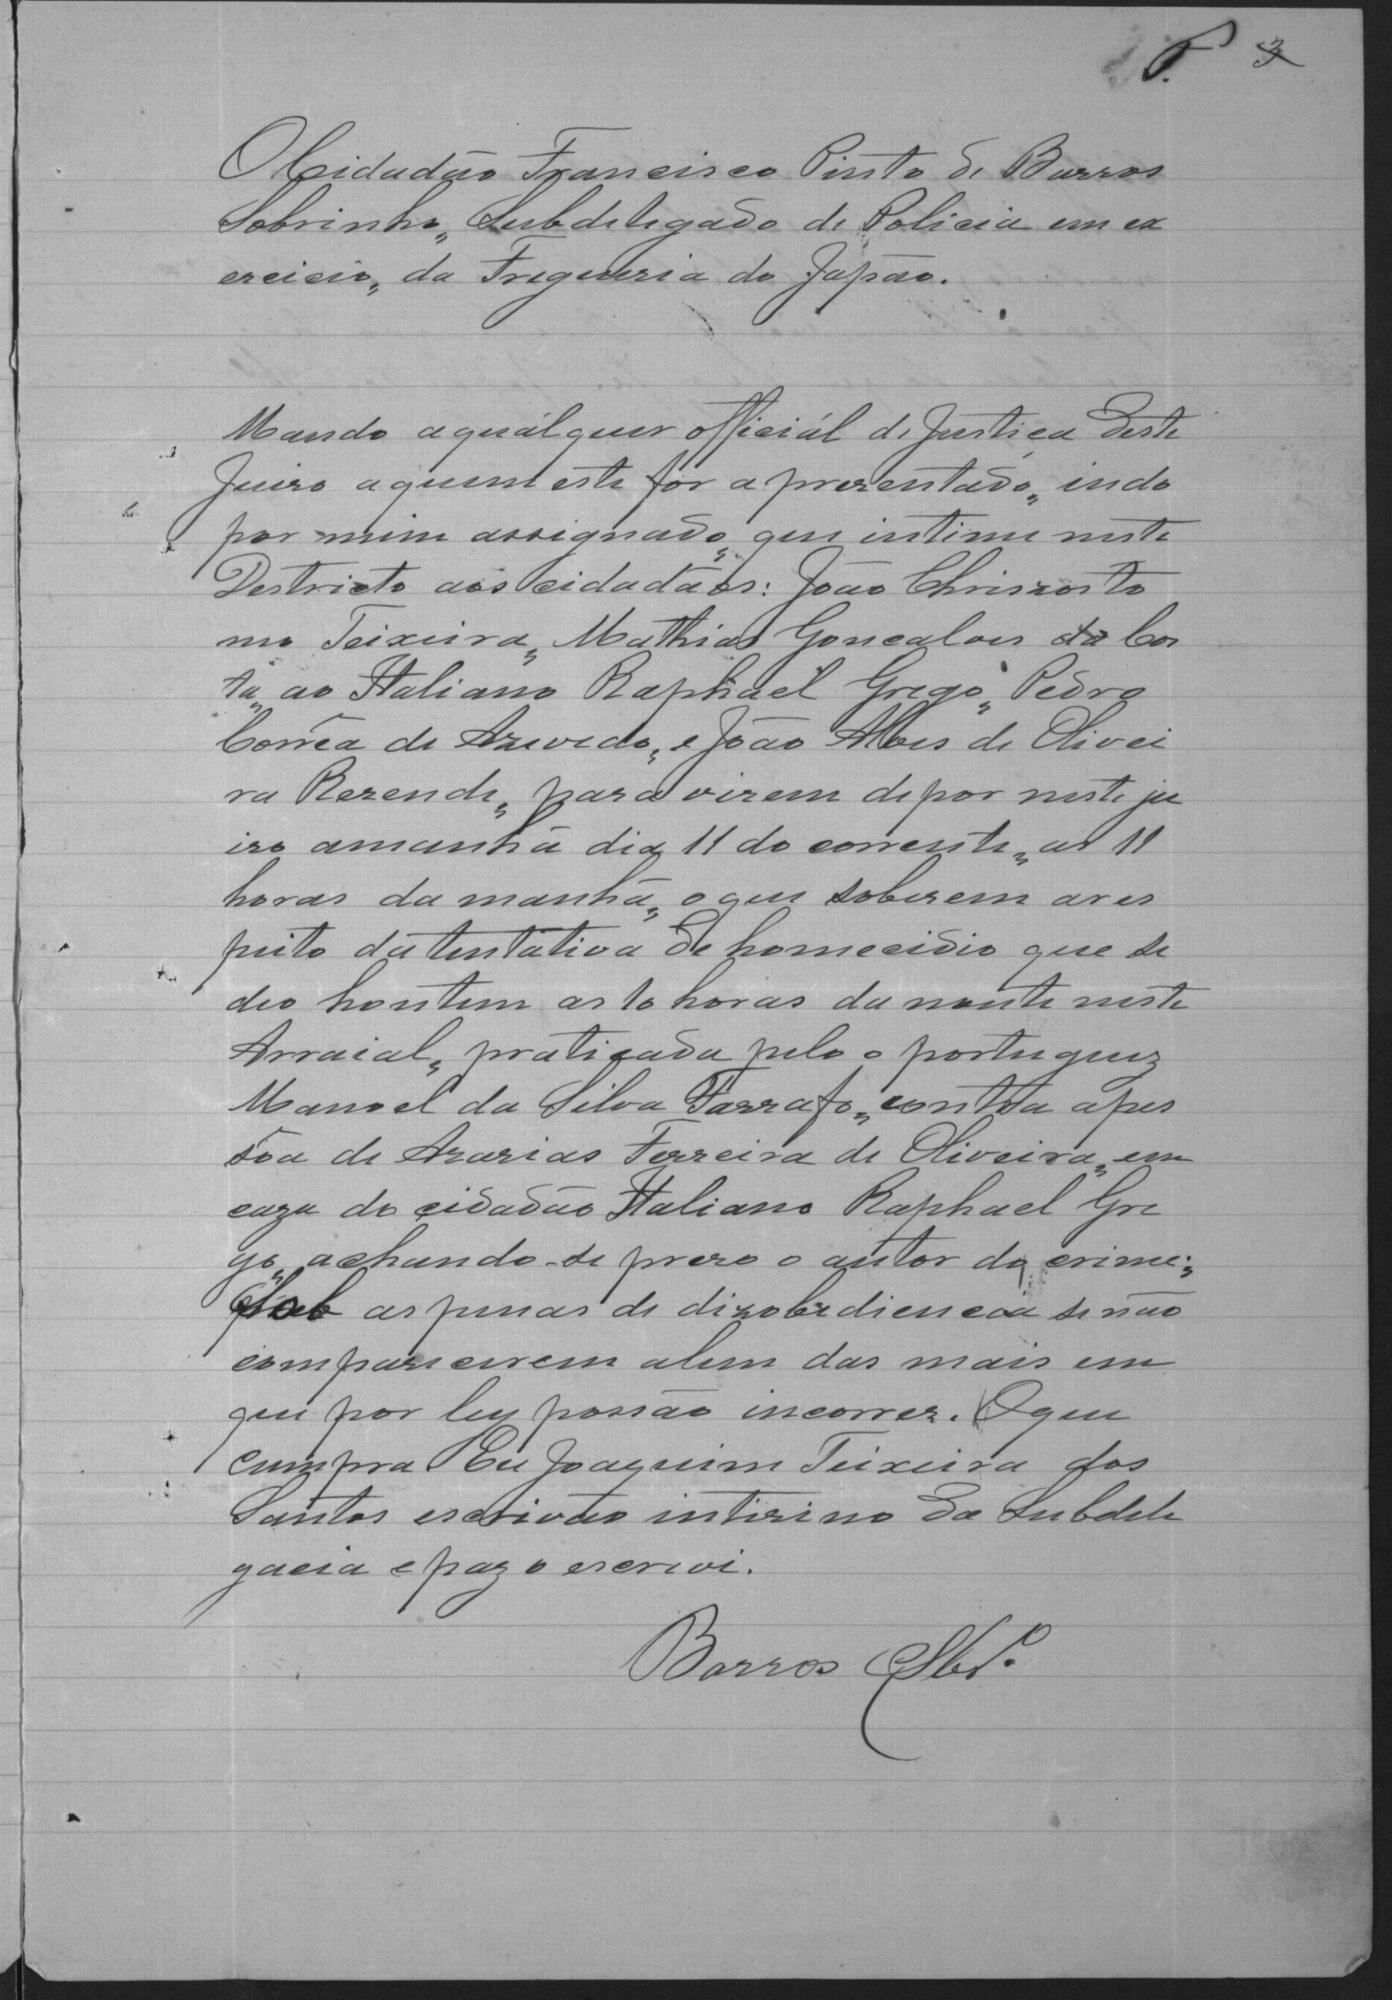 3
O Cidadão Francisco Pinto de Barros
Sobrinho, Subdelegado de Policia em ex
ercicio, da Freguezia do Japão.
Mando a quálquer officiál de Justiça deste
Juizo a quem este fôr aprezentado, indo
por mim assignado, que intime neste
Destricto aos cidadãos: João Chrizosto
mo Teixeira, Mathias Goncalves da Cos
ta, ao Italiano Raphael Grego, Pedro
Corrêa de Azevedo, e João Alves de Olivei
ra Rezende, para virem depor neste ju
izo amanhã dia 11 do corrente, as 11
horas da manhã, o que soberem a res
peito da tentativa de homecidio que se
deo hontem as 10 horas da noute neste
Arraial, praticada pelo o portuguez
Manoel da Silva Farrafo, contra a pes
sôa de Azarias Ferreira de Oliveira, em
caza do cidadão Italiano Raphael Gre
go, achando-se prezo o autor do crime;
Sob as penas de dizobediencia se não
comparecerem alem das mais em
que por ley possão incorrer. O que
cumpra Eu Joaquim Teixeira dos
Santos escrivão interino da Subdele
gacia e paz o escrevi.
Barros Sbr.º